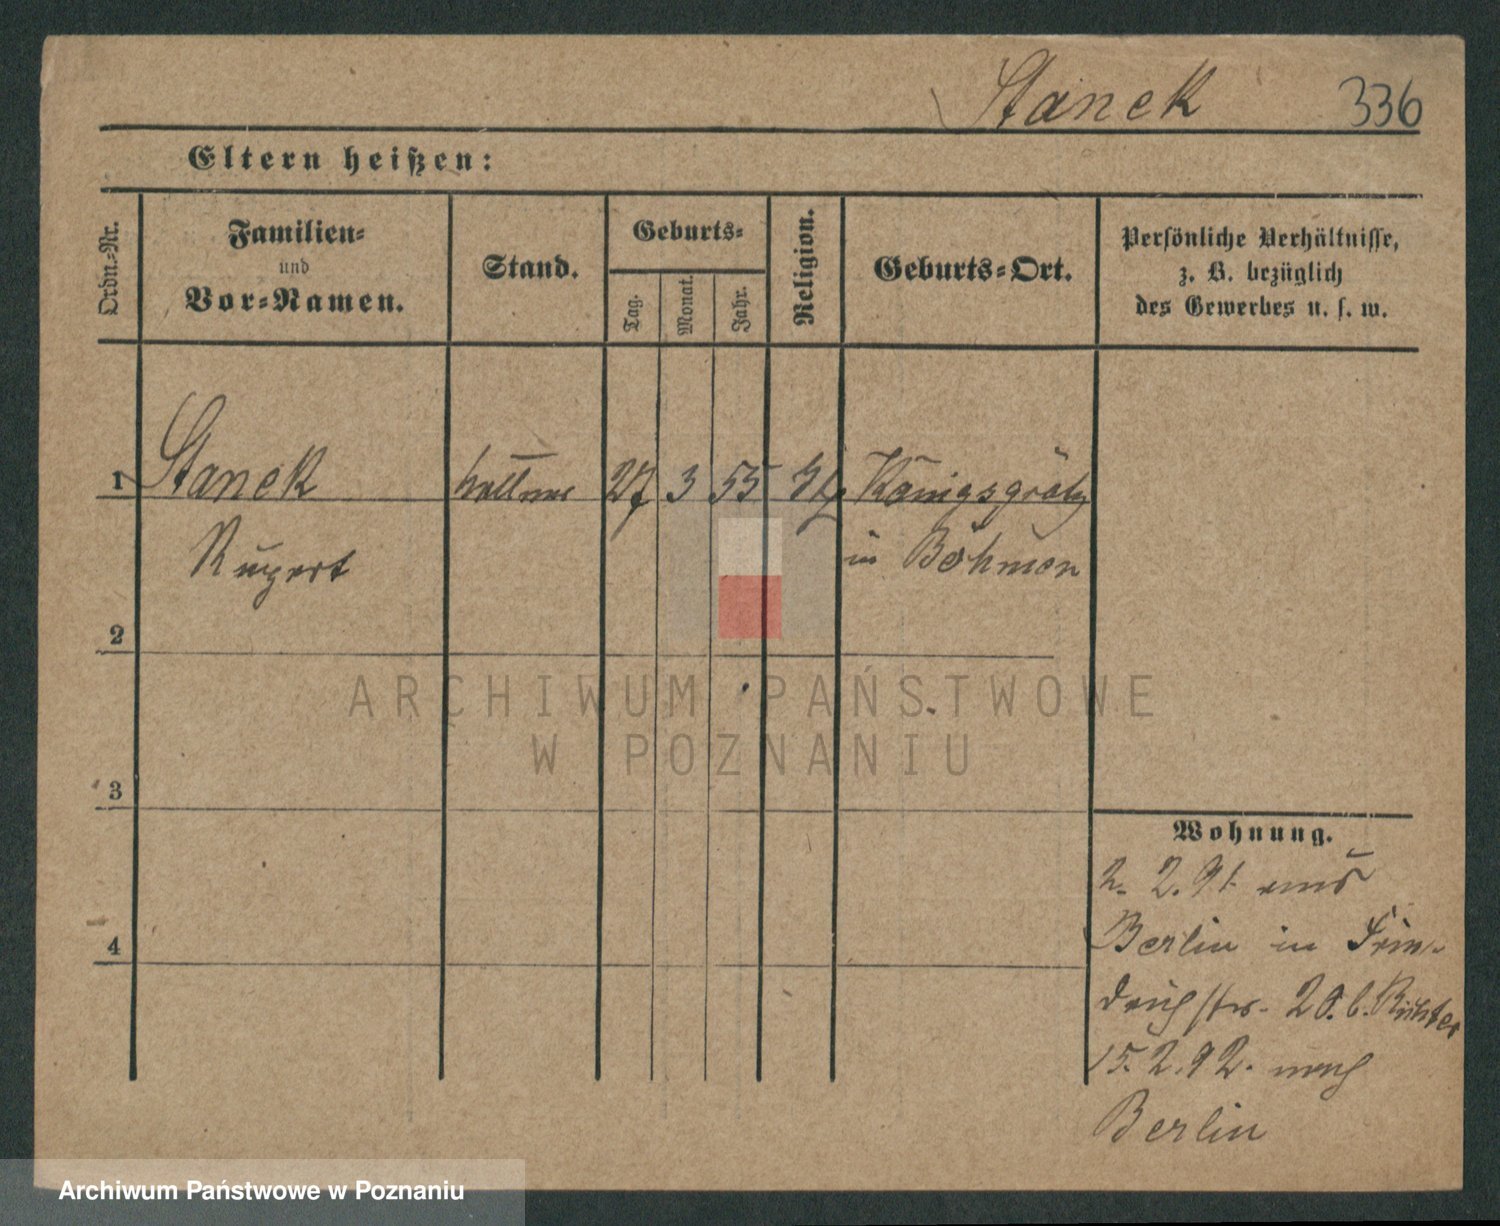 Stanek 336
Eltern heißen:
Ordn.-Nr.
Familien-
und
Vor-Namen.
Stand.
Geburts-
Tag.
Monat.
Jahr.
Religion.
Geburts-Ort.
Persönliche Verhältnisse,
z. B. bezüglich
des Gewerbes u. s. w.
1 Stanek Kellner 27 3 55 Königsgrätz
Rupert in Böhmen
2
3
4
Wohnung.
2. 2. 91. aus
Berlin in
20. b. Richter
15. 2. 92. nach
Berlin
ARCHIWUM PAŃSTWOWE
W POZNANIU
Archiwum Państwowe w Poznaniu